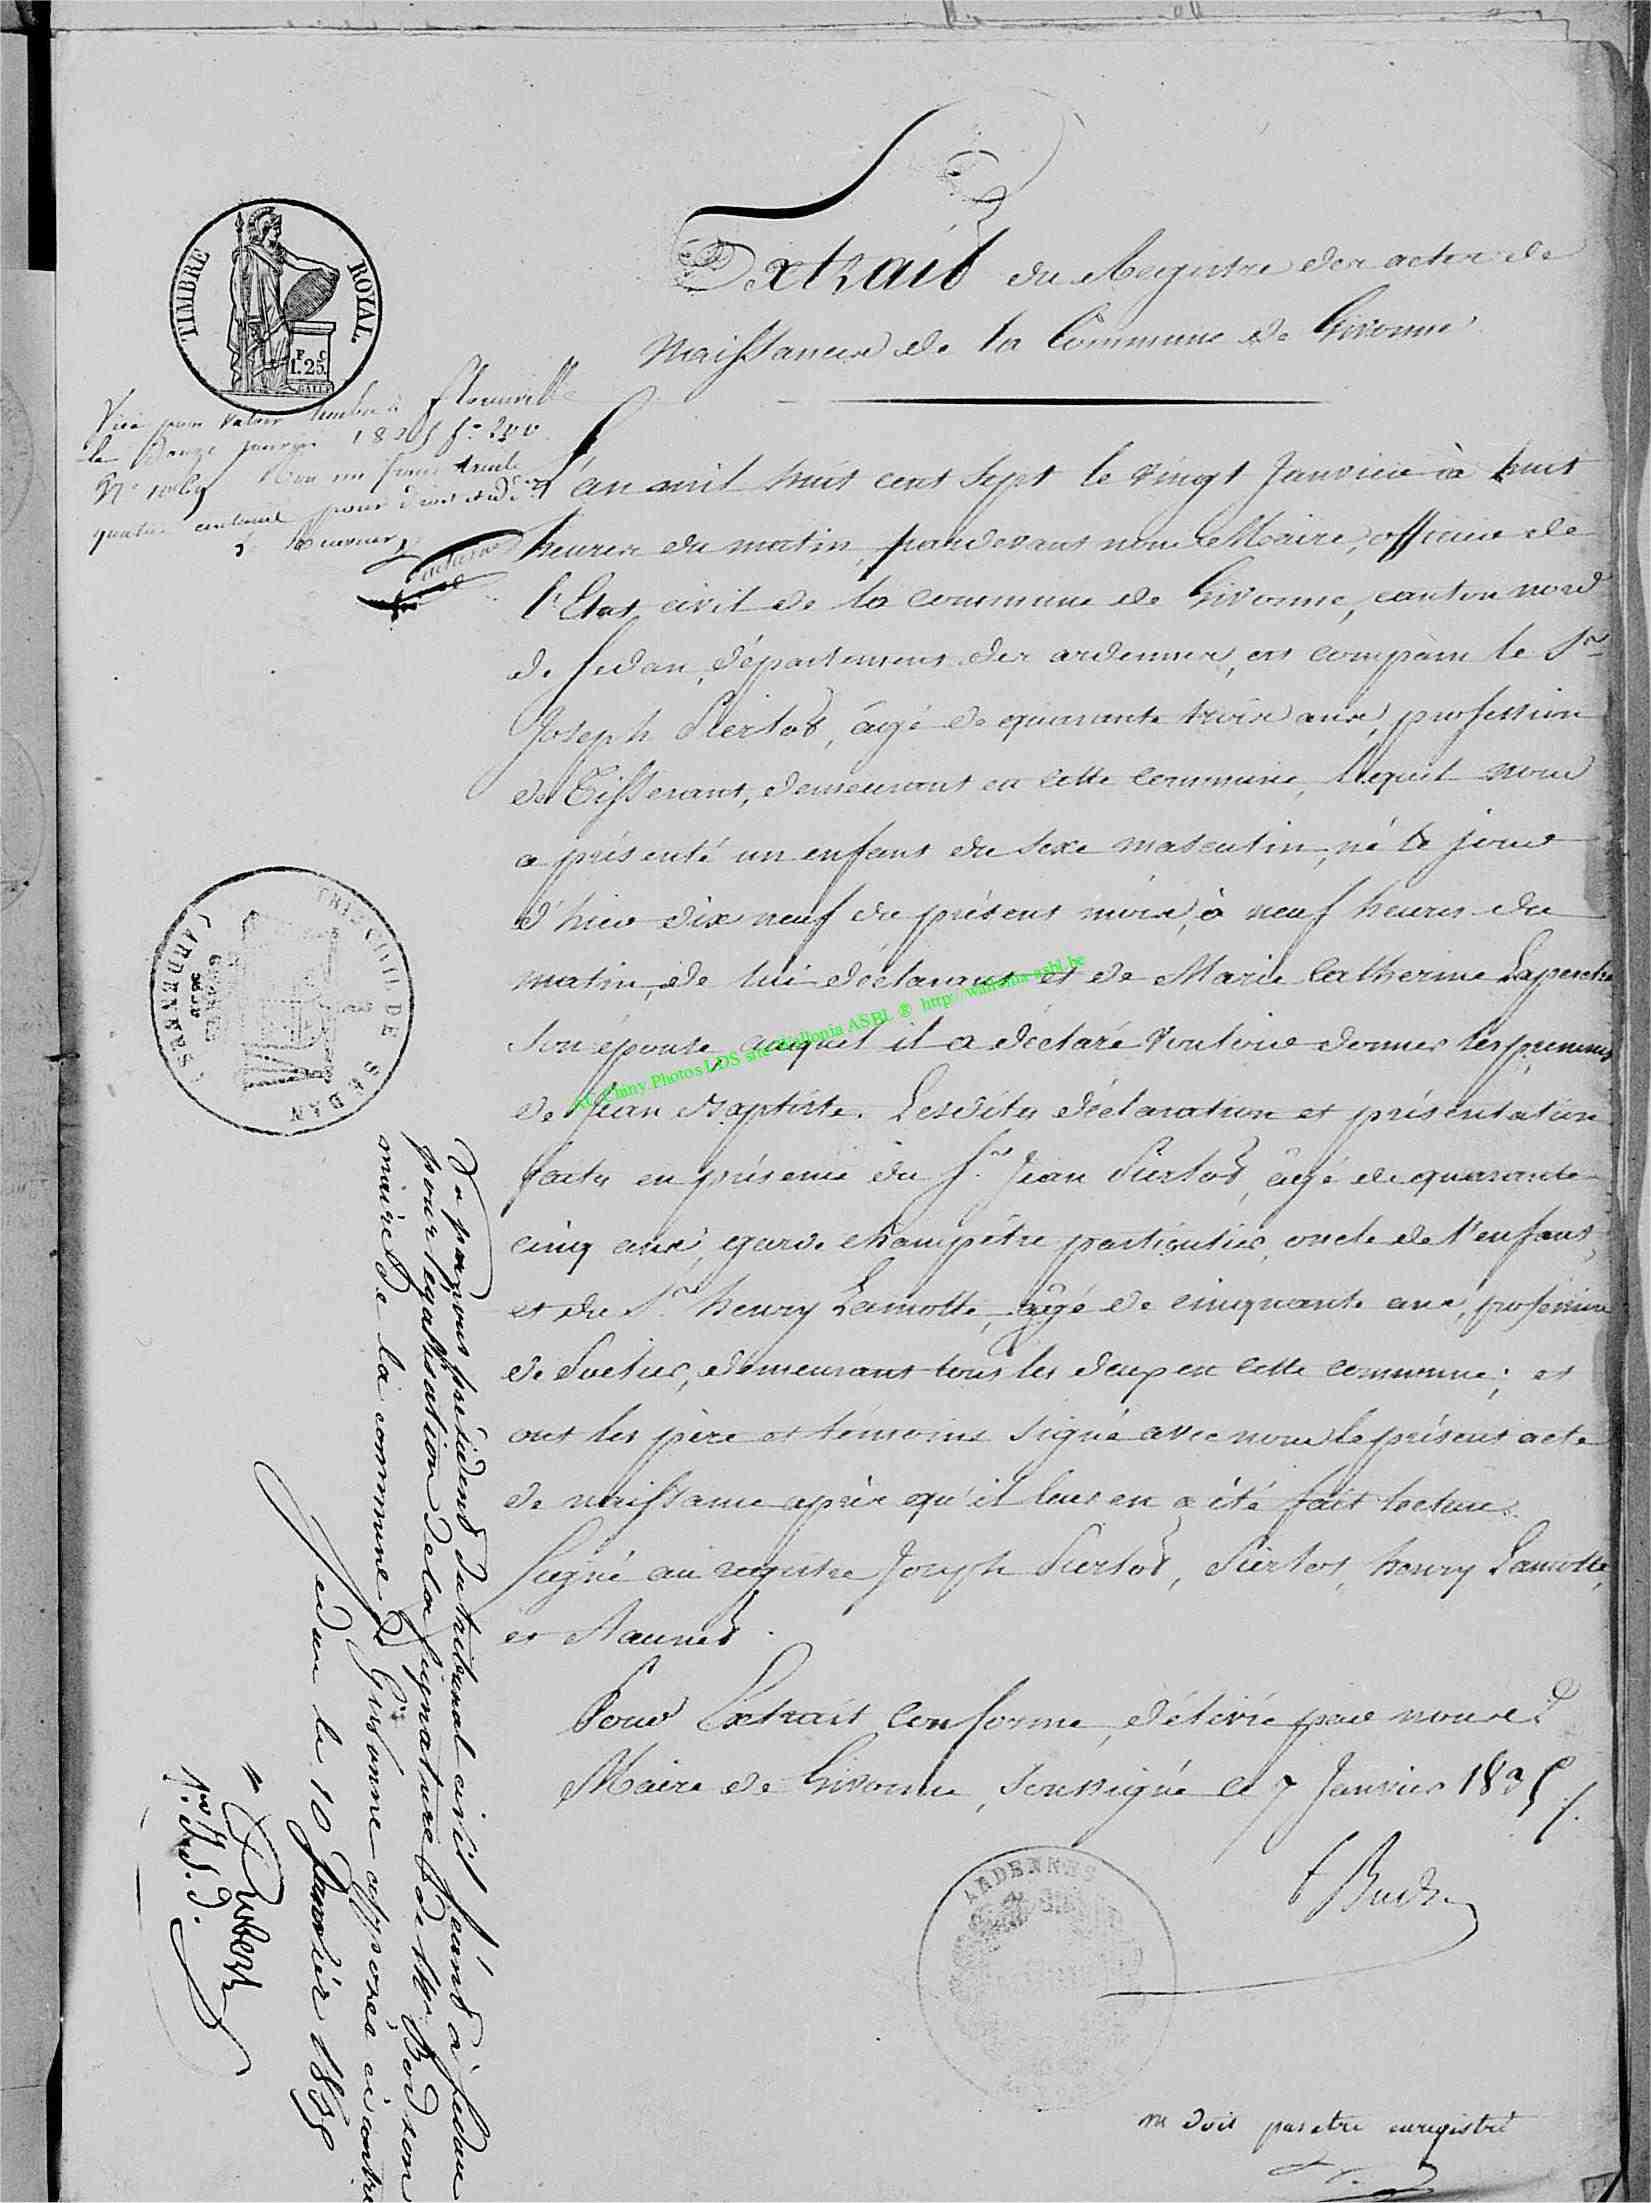 Extrait du Registre des actes de
Naissances de la Commune de Givonne
TIMBRE ROYAL
F C
1.25
GALLE
Visé pour valoir timbre à Florenville
le Douze janvier 1835 f.
un franc trente
quatre centimes pour droit
L'an mil huit cent sept le vingt Janvier à huit
heures du matin, pardevant nous Maire, officier de
l'Etat civil de la commune de Givonne, canton nord
de Sedan, département des ardennes, est comparu le Sr
Joseph Pierlot, âgé de quarante trois ans, profession
de Tisserant, demeurant en cette commune, lequel nous
a présenté un enfant du sexe masculin, né le jour
d'hier dix neuf du présent mois, à neuf heures du
matin, de lui déclarant et de Marie Catherine Laperche
son épouse, auquel il a déclaré vouloir donner les prenoms
de Jean Baptiste. Lesdites déclaration et présentation
faites en présence du Sr. Jean Pierlot, âgé de quarante
cinq ans, garde champêtre particulier, oncle de l'enfant,
et du Sr. henry Lamotte, âgé de cinquante ans, profession
de Poelier, demeurant tous les deux en cette commune; et
ont les père et témoins signé avec nous le présent acte
de naissance après qu'il leur en a été fait lecture.
Signé au registre Joseph Pierlot, Pierlot, henry Lamotte,
et
Pour Extrait conforme, délivré par nous
Maire de Givonne, soussigné le 7 Janvier 1835
ARDENNES
ne doit pas etre enregistré
TRIB. CIVIL DE SEDAN
(ARDENNES)
Vu par nous président du tribunal civil séant à Sedan
pour légalisation de la signature de Mr.
maire de la commune de Givonne apposée ci contre
Sedan le 10 Janvier 1835
AL Chiny Photos LDS site Wallonia ASBL ® http://wallonia-asbl.be